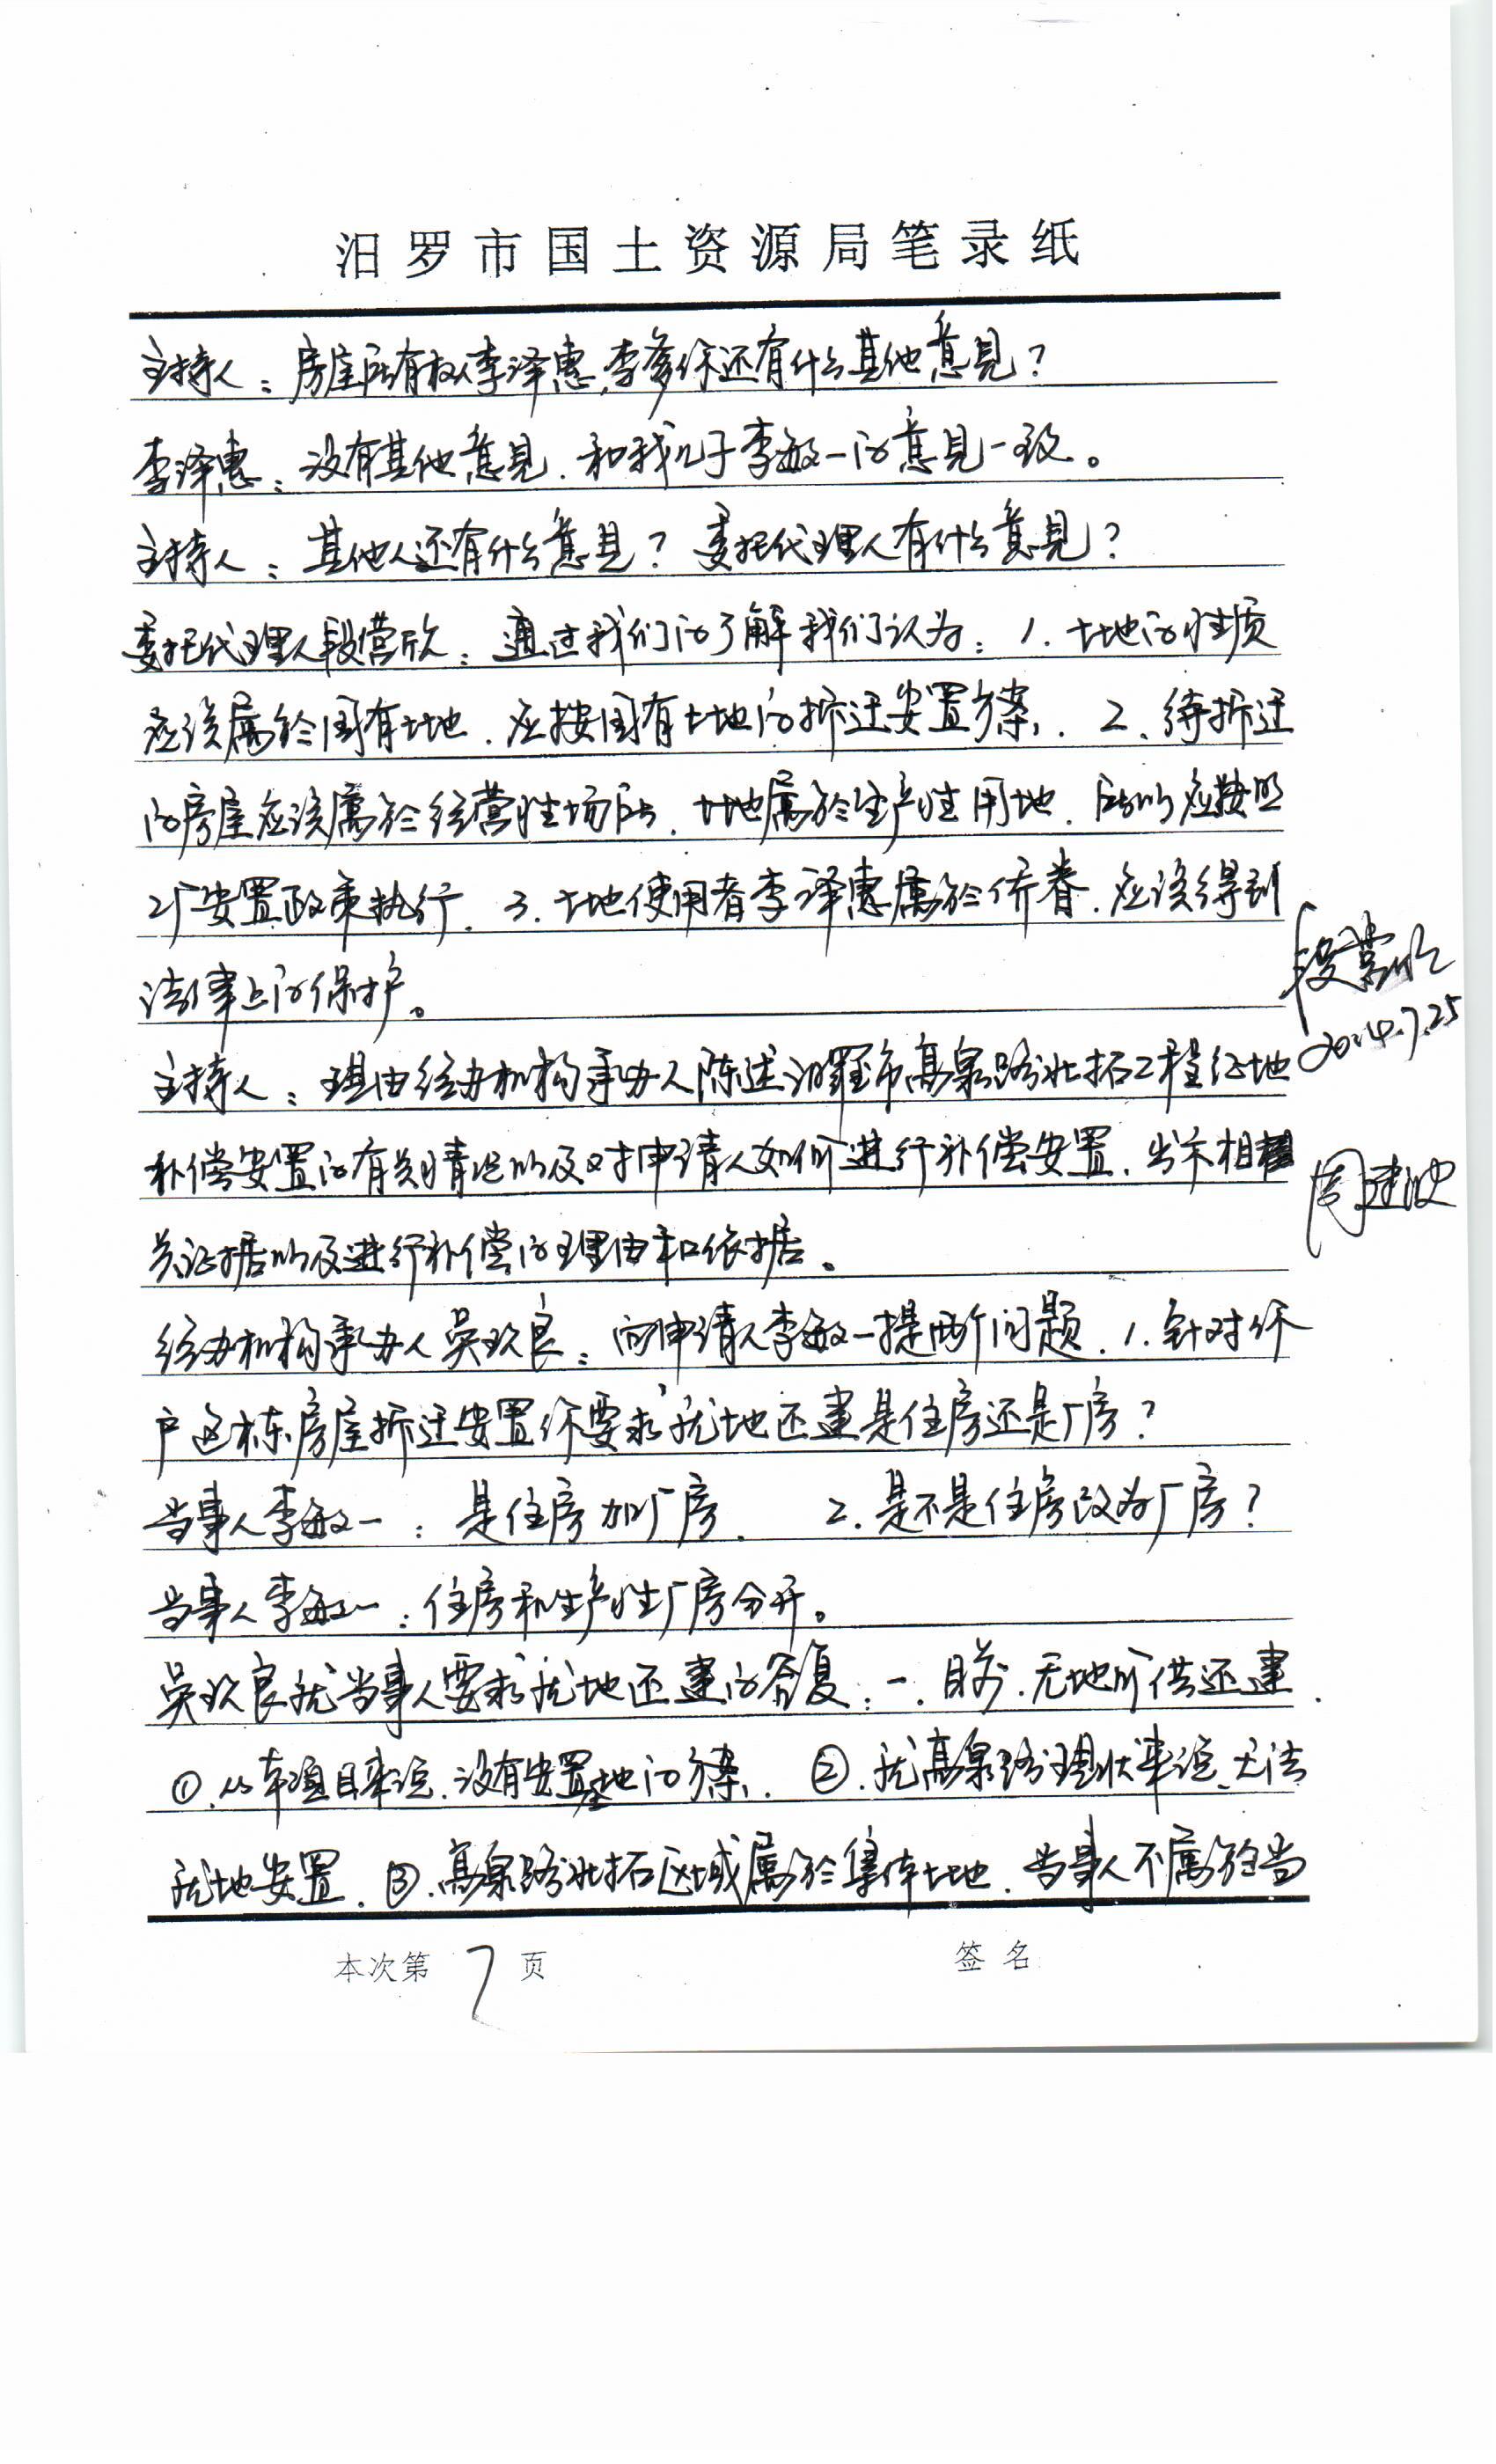 汨罗市国土资源局笔录纸
主持人：房屋所有权人李泽惠,李爹你还有什么其他意见？
李泽惠：没有其他意见.和我儿子李敏一的意见一致。
主持人：其他人还有什么意见？委托代理人有什么意见？
委托代理人段营欣：通过我们的了解我们认为：1.土地的性质
应该属於国有土地.应按国有土地的拆迁安置方案.2、待拆迁
的房屋应该属於经营性场所.土地属於生产性用地.所以应按照
工厂安置政策执行.3.土地使用者李泽惠属於侨眷.应该得到
法律上的保护。
段营欣
2014.7.25
主持人：现由经办机构承办人陈述汨罗市高泉路北拓工程征地
补偿安置的有关情况以及对申请人如何进行补偿安置.出示相
关证据以及进行补偿的理由和依据。
周建波
经办机构承办人吴玖良：向申请人李敏一提两个问题.1.针对你
户这栋房屋拆迁安置你要求就地还建是住房还是厂房？
当事人李敏一：是住房加厂房.2.是不是住房改为厂房？
当事人李敏一：住房和生产性厂房分开。
吴玖良就当事人要求就地还建的答复：一.目前.无地所供还建.
①.从本项目来说.没有安置基地的方案.②.就高泉路现状来说.无法
就地安置.③.高泉路北拓区域属於集体土地.当事人不属於当
本次第7页 签名